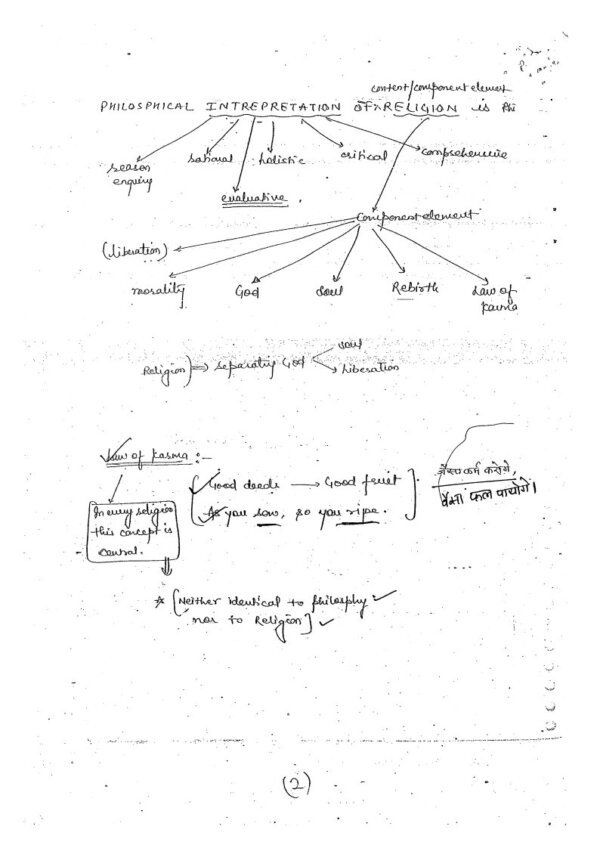 content/component element
PHILOSPHICAL INTREPRETATION OF RELIGION is Phi
reason enquiry
rational
holistic
critical
comprehensive
evaluative
component element
(liberation)
morality
God
soul
Rebirth
Law of
karma
Religion => separating God
soul
liberation
Law of karma :-
Good deeds → Good fruit
As you sow, so you ripe.
जैसा कर्म करोगे,
वैसा फल पाओगे।
In every religion
this concept is
central.
* [Neither identical to philosphy
nor to Religion]
(2)